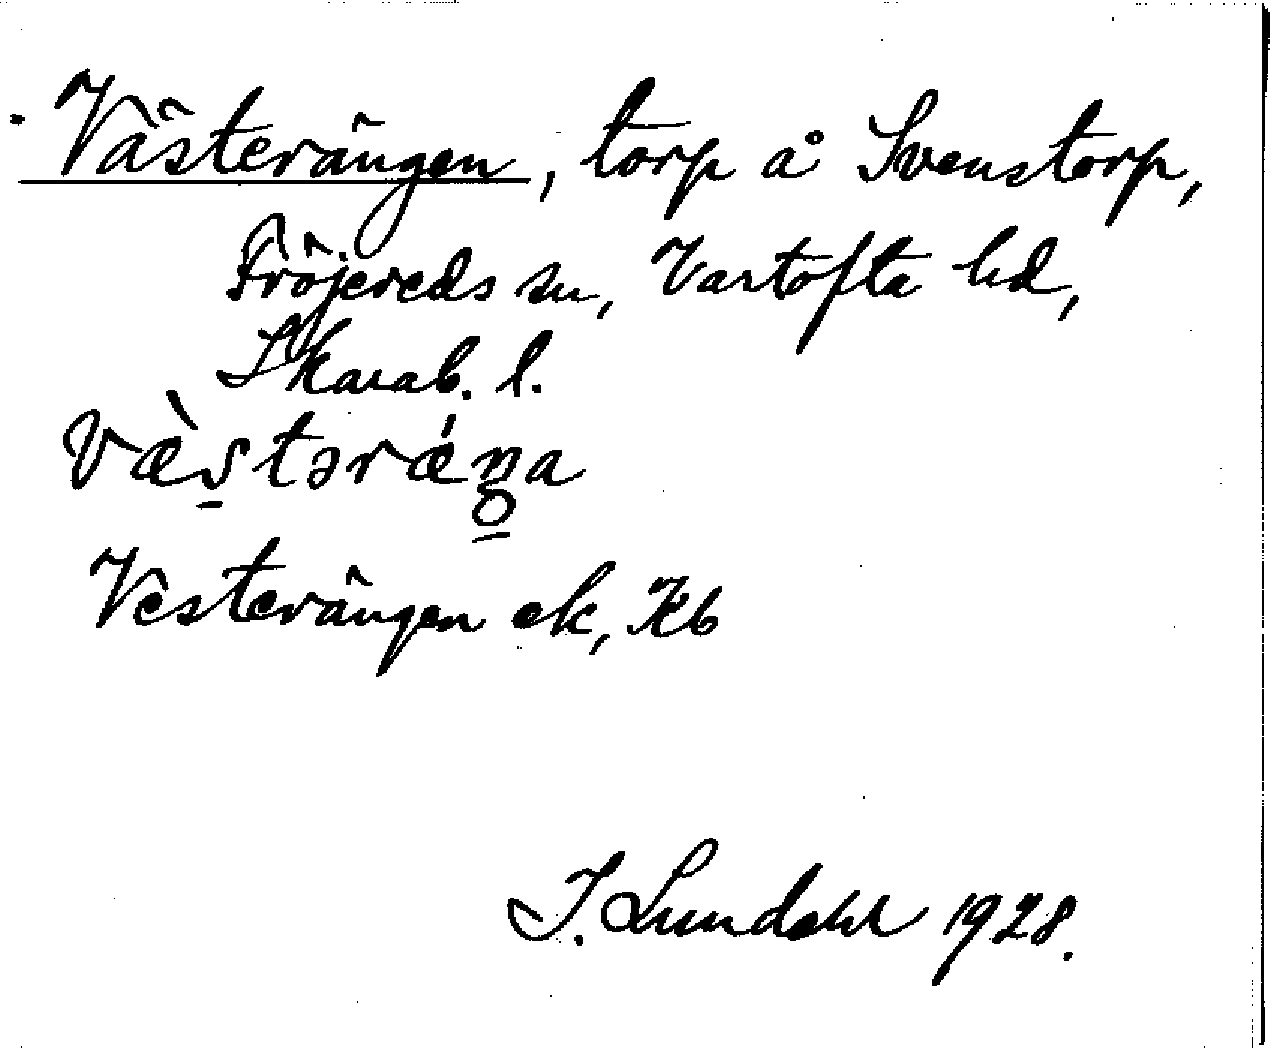 Västerängen, torp å Svenstorp,
Fröjereds sn, Vartofta hd,
Skarab. l.
væ̀s̠tərǽŋa
Vesterängen ek, Kb
I. Lundahl 1928.